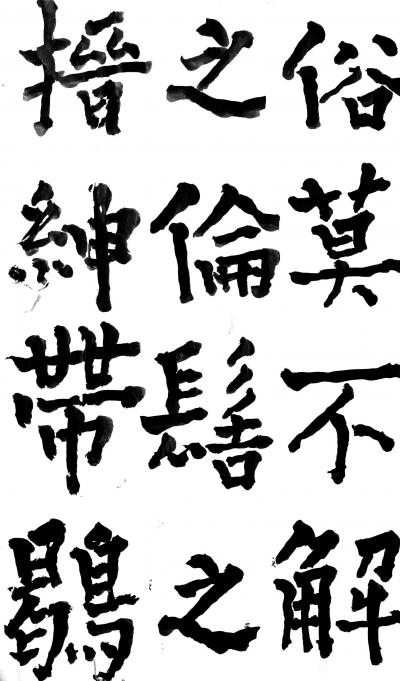 搢紳帶鶡
之倫髻之
俗莫不解